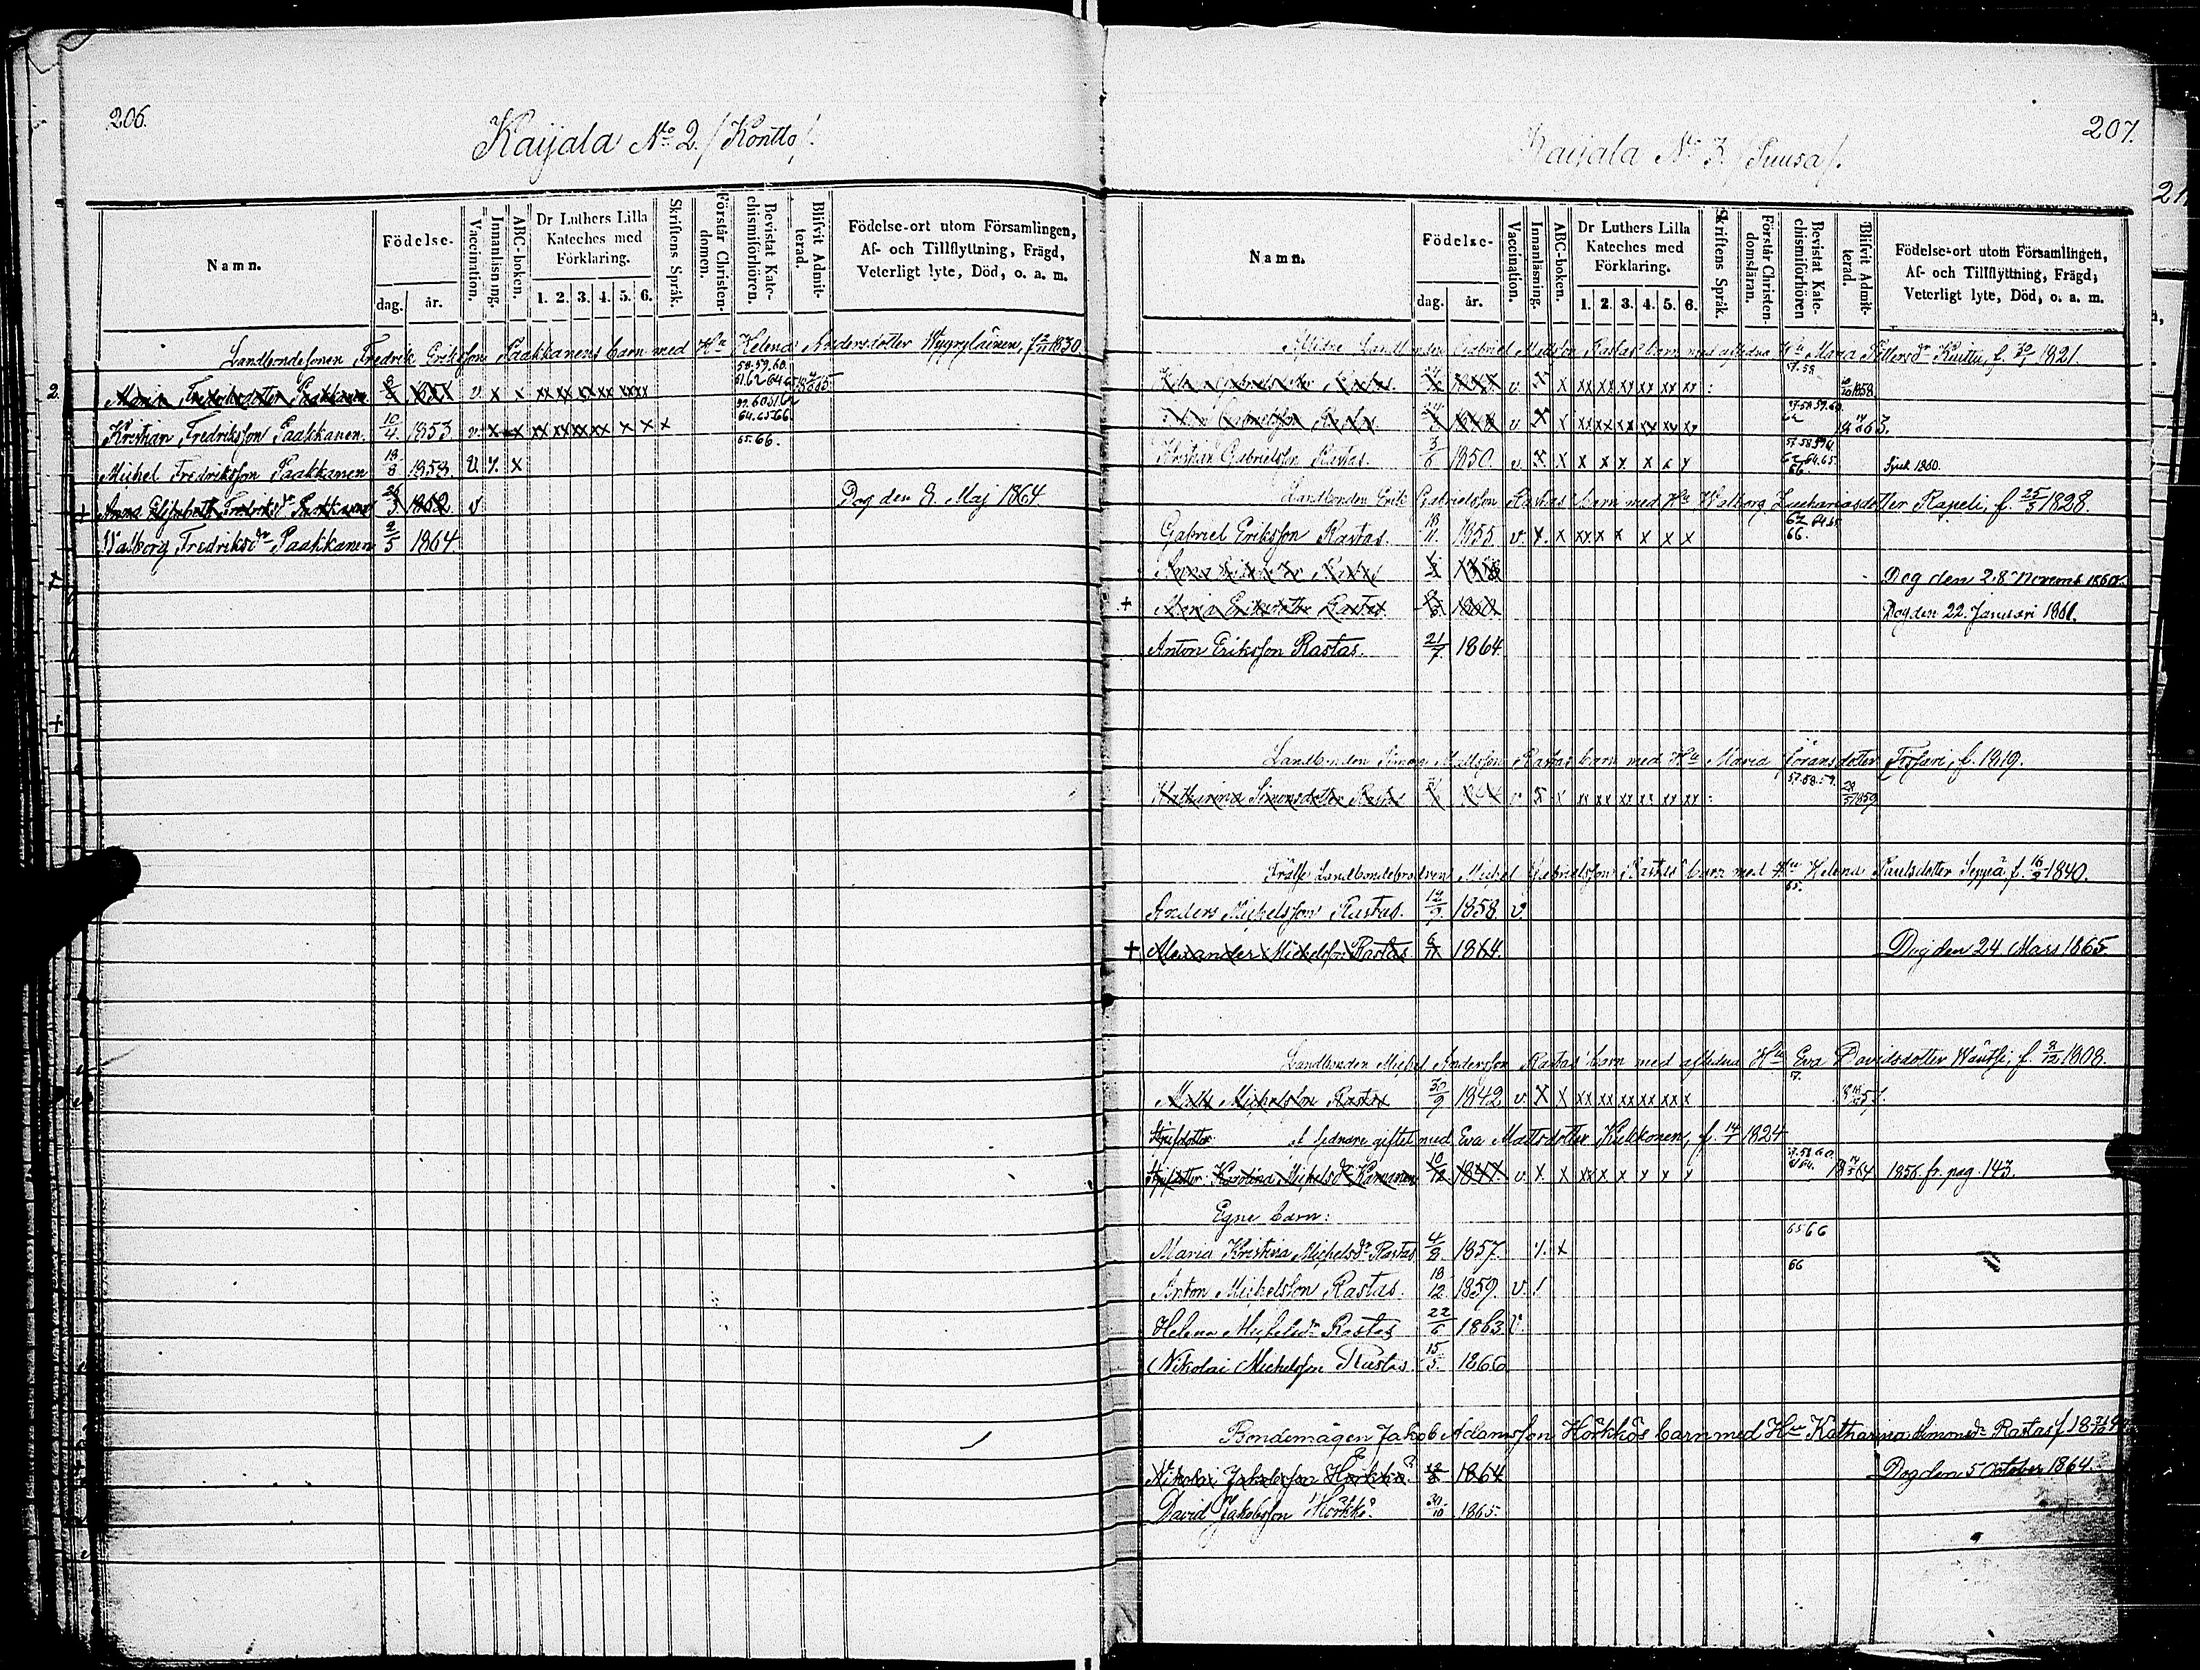 206.
Kaijala No 2. / Kontto /.
Namn.
Födelse-
dag.
år.
Vaccination.
Innanläsning.
ABC-boken.
Dr Luthers Lilla Kateches med Förklaring.
1. 2. 3. 4. 5. 6.
Skriftens Språk.
Förstår Christendomen.
Bevistat Katechismiförhören.
Blifvit Admitterad.
Födelse-ort utom Församlingen,
Af- och Tillflyttning, Frägd,
Veterligt lyte, Död, o. a. m.
Landbondesonen Fredrik Eriksson Paakkanens barn med Hu Helena Andersdotter 1830
58. 59. 60.
2. Maria Fredriksdotter Paakkanen v. x x xx xx xx xx xx xx
64. 65. 66.
Kristian Fredriksson Paakkanen. 10/4 1853 v. x x xx xx xx xx x x x
65. 66.
Michel Fredriksson Paakkanen 18/8 1858. v x
+ Anna Elisabeth Fredriksdr Paakkanen v Dog den 8. Maj 1864.
Walborg Fredriksdr Paakkanen 2/5 1864
207.
Kaijala No 3. / Suusa /.
Namn.
Födelse-
dag.
år.
Vaccination.
Innanläsning.
ABC-boken.
Dr Luthers Lilla Kateches med Förklaring.
1. 2. 3. 4. 5. 6.
Skriftens Språk.
Förstår Christendomsläran.
Bevistat Katechismiförhören
Blifvit Admitterad.
Födelse-ort utom Församlingen,
Af- och Tillflyttning, Frägd,
Veterligt lyte, Död, o. a. m.
Landbonden Gabriel Mattsson Rastas barn med aflidna Hu Maria Pettersdr Kuittu, f. 1821.
57. 58.
Gabrielsdotter Rastas. v x x xx xx xx xx xx xx 1858
57. 58. 59. 60.
62
Gabrielsson Rastas v x x xx xx xx xx xx xx
Kristian Gabrielsson Rastas. 3/6 1850. v. x x x x x x x x 62 64. 65. 66. Sjuk 1860.
Landbonden Erik Gabrielsson Rastas barn med Hu Walborg Zachariasdotter Rapeli, f. 25/5 1828.
Gabriel Eriksson Rastas. 18/11 1855 v. x. x xx x x x x x 62 64. 65 66.
Rastas 1858 Dog den 28 Novemb. 1860.
+ Maria Eriksdotter Rastas. 1860. Dog den 22. Januari 1861.
Anton Eriksson Rastas. 21/7. 1864.
Landbonden Simon Mattsson Rastas barn med Hu Maria Göransdotter f. 1819.
57. 58. 59.
Katharina Simonsdotter Rastas v x x xx xx xx xx xx xx 28/5 1859
Frälse Landbondebrodren Michel Gabrielsson Rastas barn med Hu Helena Paulsdotter Seppä, f. 16/2 1840.
65.
Anders Michelsson Rastas. 12/9 1858 v.
+ Alexander Michelsson Rastas 6/11 1864. Dog den 24 Mars 1865.
Landbonden Michel Andersson Rastas barn med aflidna Hu Eva Davidsdotter f. 8/12 1808.
57.
Matts Michelsson Rastas 30/9 1842. v. x x xx xx xx xx xx x
Styfdotter I sednare giftet med Eva Mattsdotter Kukkonen, f. 14/7 1824
Styfdotter. Karolina Michelsdr 10/12 1847. v. x. x xx x x x x x 1856. fr. pag. 143.
Egne barn:
65 66
Maria Kristina Michelsdr Rastas 4/8. 1857. x
66
Anton Michelsson Rastas. 18/12 1859. v. /
Helena Michelsdr Rastas 22/6 1863 v.
Nikolai Michelsson Rastas. 15/5. 1866
Bondemågen Jakob Adamsson Hörkkös barn med Hu Katharina Simonsdr Rastas f.
Nikolai Jakobsson Hörkkö. 1864 Dog den 5 October 1864.
David Jakobsson Hörkkö. 30/10 1865.